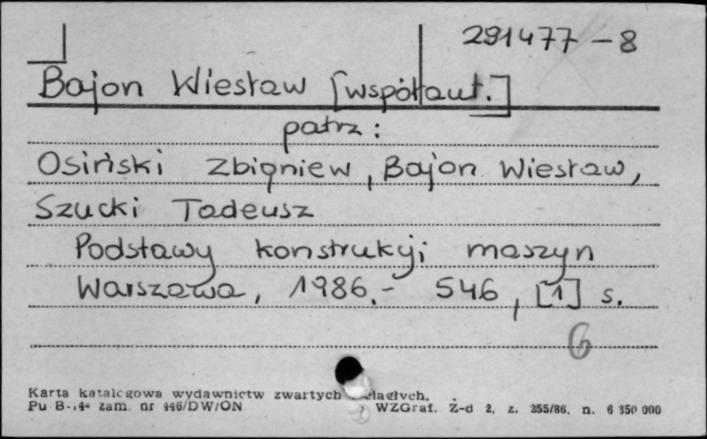 291477-8
Bajon Wiesław [współaut.]
patrz:
Osiński Zbigniew, Bajon Wiesław,
Szucki Tadeusz
Podstawy konstrukyj maszyn
Warszawa, 1986.- 546, [1] s.
6
Karta katalogowa wydawnictw zwartych
Pu B- zam. nr 446/DW/ON WZGraf. Z-d 2, z. 255/86. n. 6 350 000